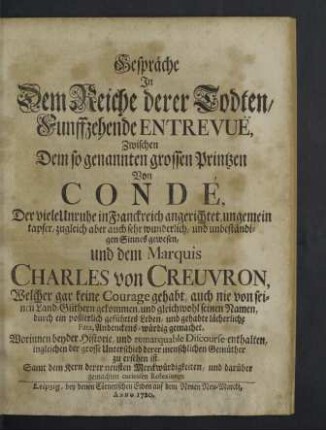 Gespräche
In
Dem Reiche derer Todten/
Funffzehende ENTREVUË,
Zwischen
Dem so genannten grossen Printzen
Von
CONDÉ,
Der viele Unruhe in Franckreich angerichtet, ungemein
tapfer, zugleich aber auch sehr wunderlich, und unbeständi-
gen Sinnes gewesen,
und dem Marquis
CHARLES von CREUVRON,
Welcher gar keine Courage gehabt, auch nie von sei-
nen Land-Güthern gekommen, und gleichwohl seinen Namen,
durch ein poßierlich geführtes Leben, und gehabte lächerliche
Fata, Andenckens-würdig gemachet.
Worinnen beyder Historie, und remarquable Discourse enthalten,
ingleichen der grosse Unterschied derer menschlichen Gemüther
zu ersehen ist.
Samt dem Kern derer neuesten Merckwürdigkeiten, und darüber
gemachten curieusen Reflexions.
Leipzig, bey denen Cörnerischen Erben auf dem Neuen Neu-Marck,
ANNO 1720.